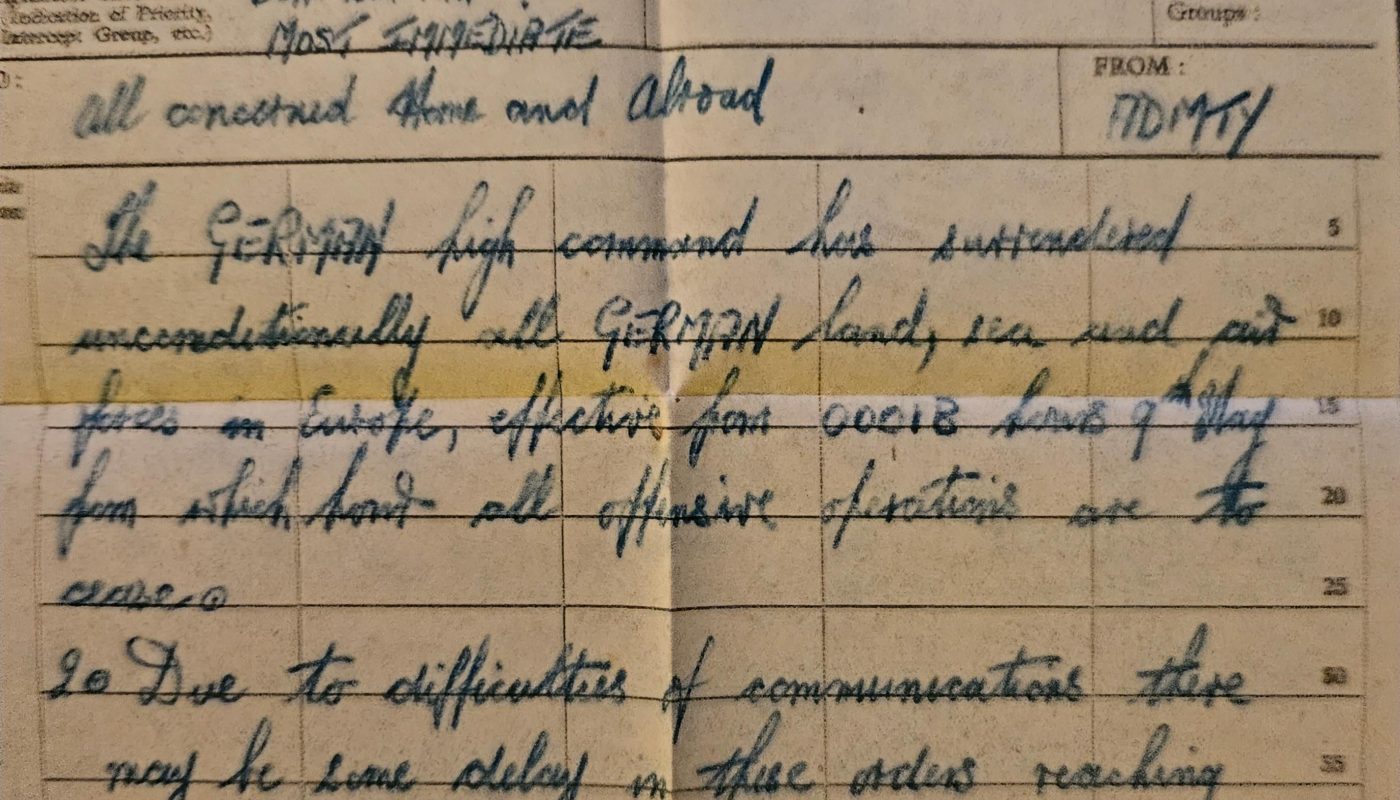 (Indication of Priority,
Intercept Group, etc.)
MOST IMMEDIATE
Groups :
FROM :
All concerned Home and Abroad
ADMTY
The GERMAN high command has surrendered
5
unconditionally all GERMAN land, sea and air
10
forces in Europe, effective from 0001B hours 9th May
15
from which hour all offensive operations are to
20
cease.
25
2. Due to difficulties of communications there
30
may be some delay in these orders reaching
35